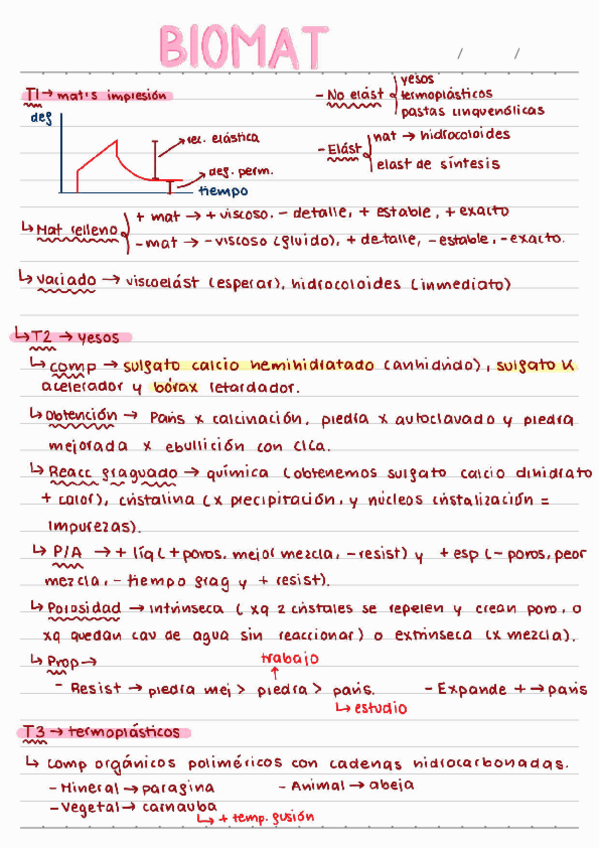 BIOMAT
/ /
T1 → mat's impresión
def
rec. elástica
def. perm.
tiempo
- No elást
yesos
termoplásticos
pastas cinquenólicas
- Elást
nat → hidrocoloides
elast de síntesis
↳ Mat relleno
+ mat → + viscoso. - detalle, + estable, + exacto
- mat → - viscoso (fluido), + detalle, - estable, - exacto.
↳ Vaciado → viscoelást (esperar), hidrocoloides (inmediato)
↳ T2 → yesos
↳ comp → sulfato calcio hemihidratado (anhidrido), sulfato K
acelerador y bórax retardador.
↳ Obtención → París x calcinación, piedra x autoclavado y piedra
mejorada x ebullición con ClCa.
↳ Reacc fraguado → química (obtenemos sulfato calcio dihidrato
+ calor), cristalina (x precipitación, y núcleos cristalización =
impurezas).
↳ P/A → + líq (+ poros, mejor mezcla, - resist) y + esp (- poros, peor
mezcla, - tiempo frag y + resist).
↳ Porosidad → intrínseca (xq 2 cristales se repelen y crean poro, o
xq quedan cav de agua sin reaccionar) o extrínseca (x mezcla).
↳ Prop →
trabajo
- Resist → piedra mej > piedra > parís. - Expande + → parís
↳ estudio
T3 → termoplásticos
↳ Comp orgánicos poliméricos con cadenas hidrocarbonadas.
- Mineral → parafina - Animal → abeja
- Vegetal → carnauba
↳ + temp. fusión